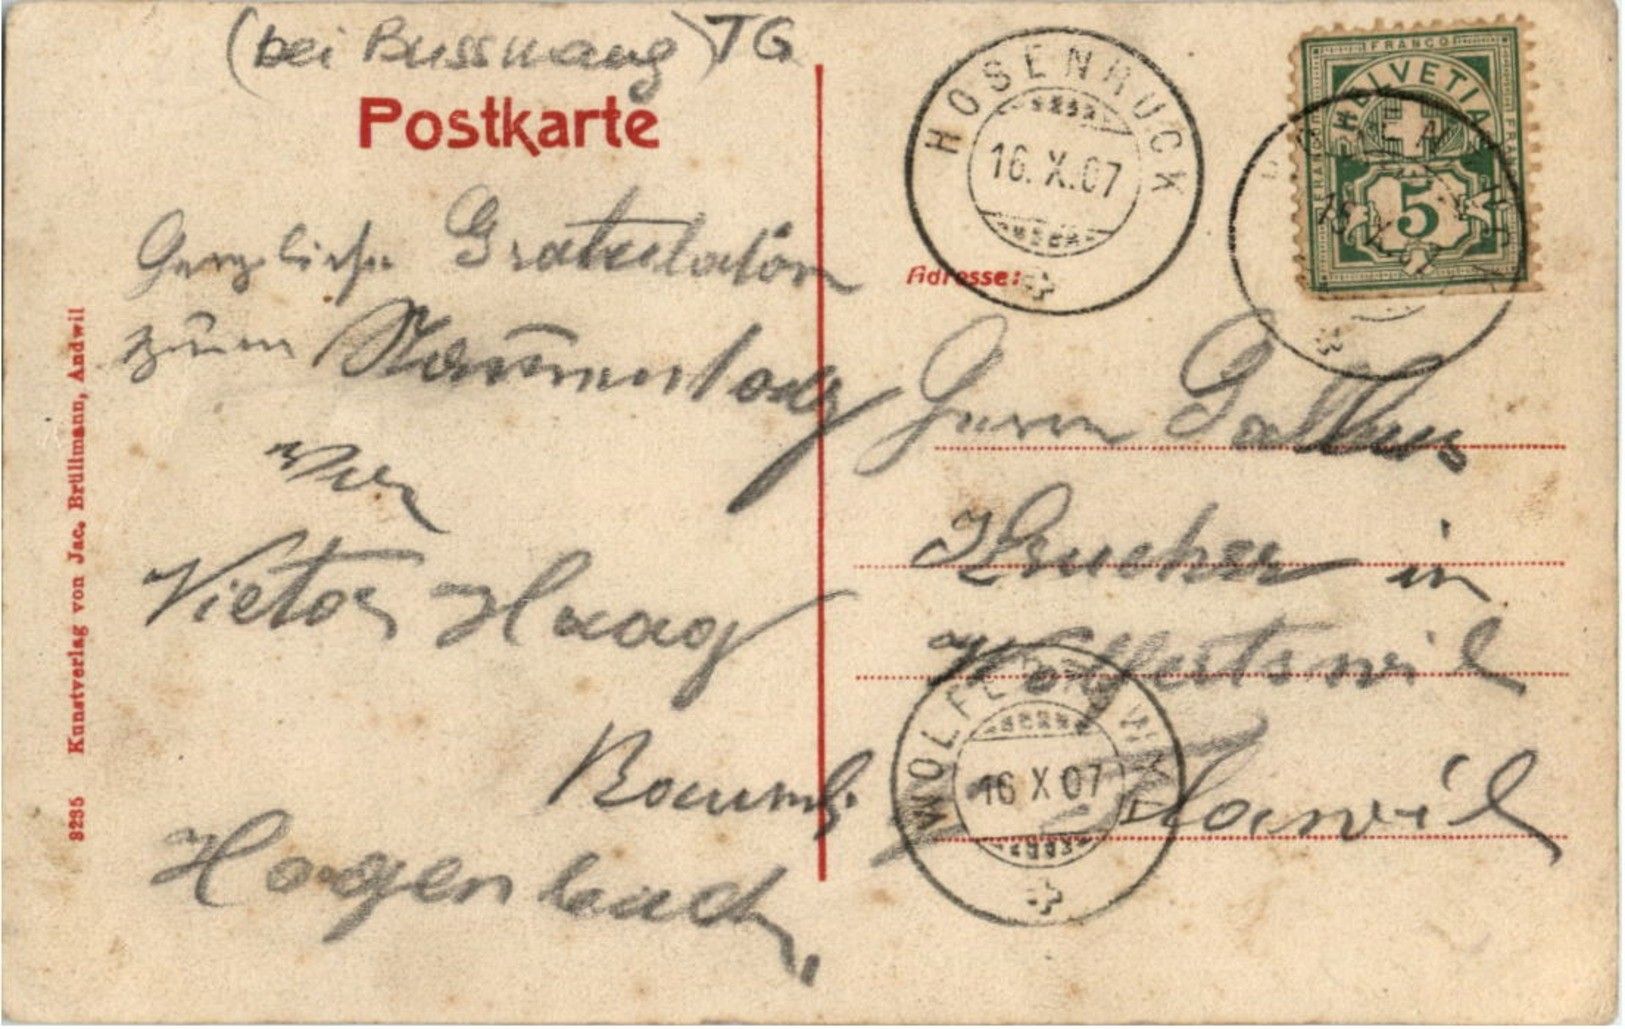 (bei Bussnang) TG
Postkarte
Herzliche Gratulation
zum Namenstag
Victor Haag
Hagenbuch
3235 Kunstverlag von Jac. Brüllmann, Andwil
HOSENRUCK
16. X. 07
FRANCO
HELVETIA
FRANCO
FRANCO
5
Adresse:
Herrn Gallus
Brucker in
Wolfertswil
Flawil
WOLFERTSWIL
16 X 07